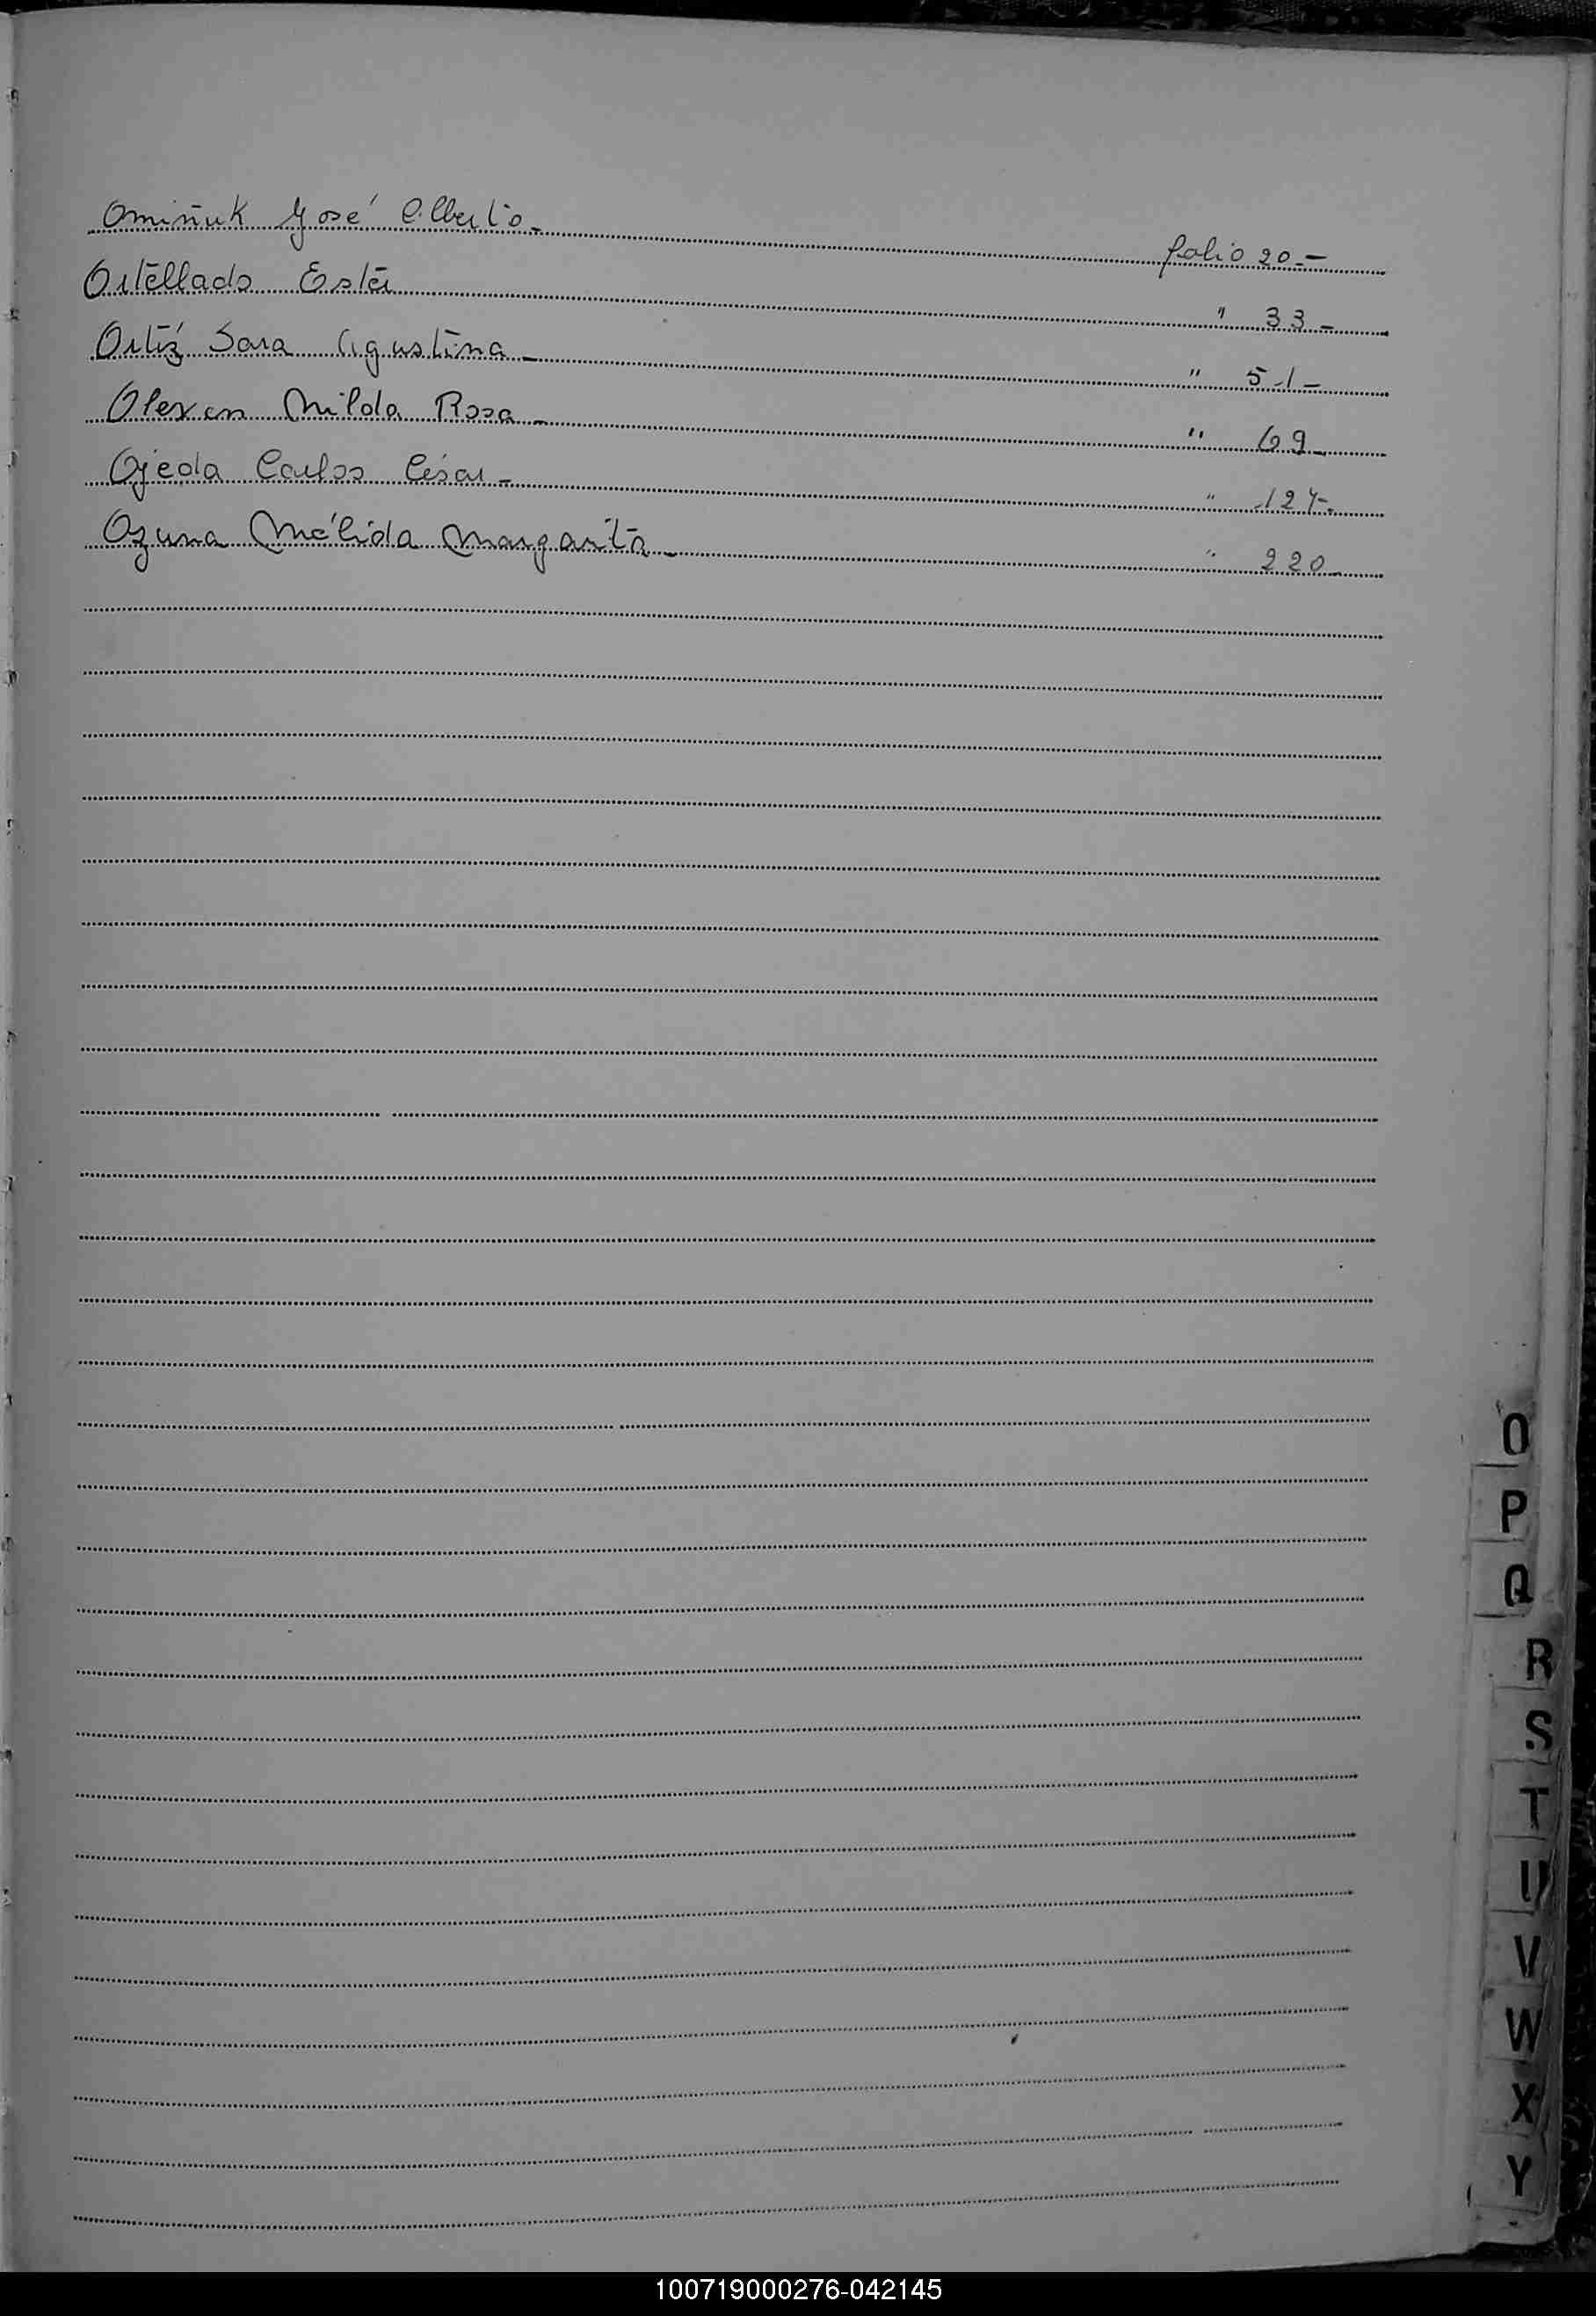 Omiñuk José Alberto - folio 20.-
Ortellado Ester " 33-
Ortíz Sara Agustina - " 51-
Olexen Nilda Rosa - " 69-
Ojeda Carlos César - " 124-
Ozuna Nélida Margarita - " 220-
O
P
Q
R
S
T
U
V
W
X
Y
100719000276-042145